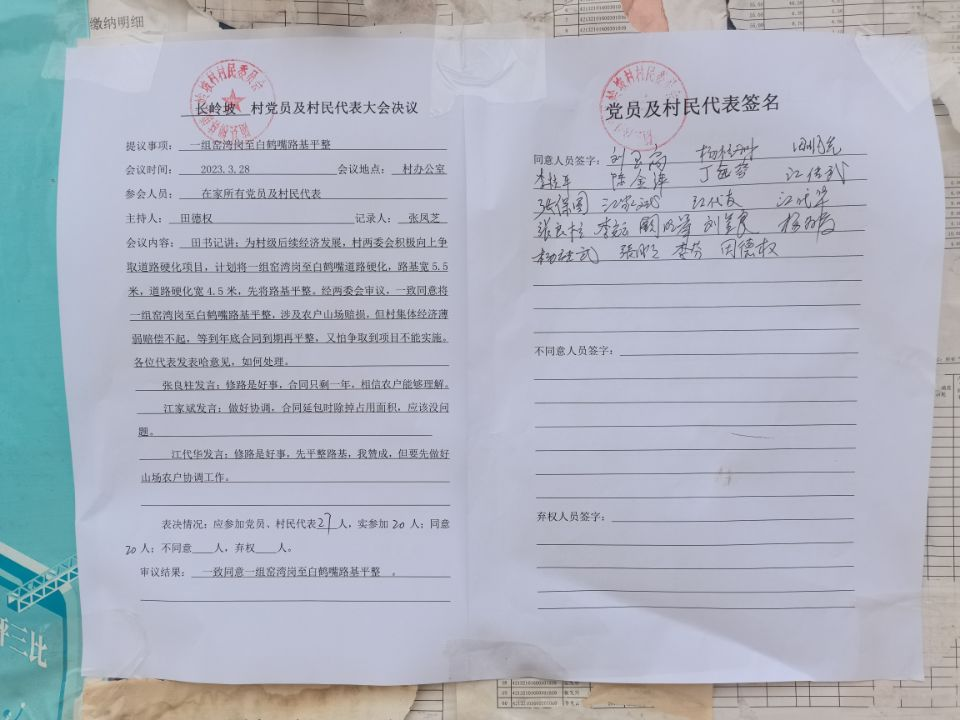 缴纳明细
长岭坡 村党员及村民代表大会决议
提议事项： 一组窑湾岗至白鹤嘴路基平整
会议时间： 2023.3.28 会议地点： 村办公室
参会人员： 在家所有党员及村民代表
主持人： 田德权 记录人： 张凤芝
会议内容： 田书记讲：为村级后续经济发展，村两委会积极向上争
取道路硬化项目，计划将一组窑湾岗至白鹤嘴道路硬化，路基宽 5.5
米，道路硬化宽 4.5 米，先将路基平整。经两委会审议，一致同意将
一组窑湾岗至白鹤嘴路基平整，涉及农户山场赔损，但村集体经济薄
弱赔偿不起，等到年底合同到期再平整，又怕争取到项目不能实施。
各位代表发表啥意见，如何处理。
张良柱发言：修路是好事，合同只剩一年，相信农户能够理解。
江家斌发言：做好协调，合同延包时除掉占用面积，应该没问
题。
江代华发言：修路是好事，先平整路基，我赞成，但要先做好
山场农户协调工作。
表决情况：应参加党员、村民代表27人，实参加20人；同意
20人；不同意 人，弃权 人。
审议结果： 一致同意一组窑湾岗至白鹤嘴路基平整 。
党员及村民代表签名
同意人员签字：
李桂平 陈金萍 江传武
张保国 江家斌 江代友 江代华
张良柱
张凤芝 李芬 田德权
不同意人员签字：
弃权人员签字：